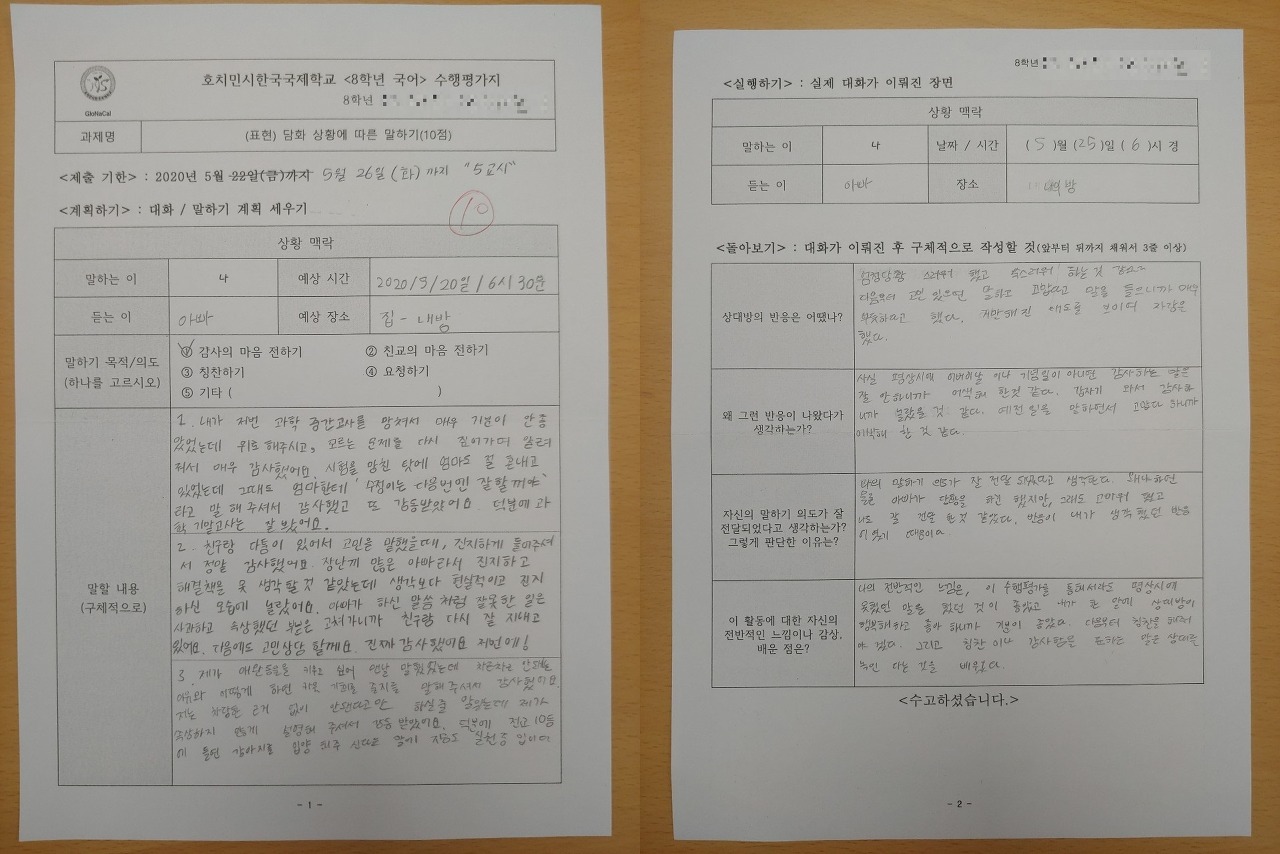 GloNaCal
호치민시한국국제학교 <8학년 국어> 수행평가지
8학년
과제명
(표현) 담화 상황에 따른 말하기(10점)
<제출 기한> : 2020년 5월 22일(금)까지 5월 26일(화)까지 "5교시"
<계획하기> : 대화 / 말하기 계획 세우기
10
상황 맥락
말하는 이 나 예상 시간 2020/5/20일/6시 30분
듣는 이 아빠 예상 장소 집 - 내방
말하기 목적/의도
(하나를 고르시오)
① 감사의 마음 전하기 ② 친교의 마음 전하기
③ 칭찬하기 ④ 요청하기
⑤ 기타 ( )
말할 내용
(구체적으로)
1. 내가 저번 과학 중간고사를 망쳐서 매우 기분이 안좋
았었는데 위로해주시고, 모르는 문제를 다시 짚어가며 알려
줘서 매우 감사했어요. 시험을 망친 탓에 엄마도 절 혼내고
있었는데 그때도 엄마한테 '수정이는 다음번엔 잘할꺼야'
라고 말 해주셔서 감사했고 또 감동받았어요. 덕분에 과
학 기말고사는 잘 봤어요.
2. 친구랑 다툼이 있어서 고민을 말했을때, 진지하게 들어주셔
서 정말 감사했어요. 장난끼 많은 아빠라서 진지하고
해결책을 못 생각할것 같았는데 생각보다 현실적이고 진지
하신 모습에 놀랐어요. 아빠가 하신 말씀처럼 잘못한 일은
사과하고 속상했던 부분은 고쳐가니까 친구랑 다시 잘 지내고
있어요. 다음에도 고민상담 할게요. 진짜 감사했어요 저번에!
3. 제가 애완동물을 키우고 싶어 맨날 말했었는데 차근차근 안되는
이유와 어떻게 하면 키울 기회를 줄지를 말해주셔서 감사했어요.
저는 차랑은 근거 없이 안된다고만 하실줄 알았는데 제가
속상하지 않게 설명해 주셔서 감동 받았어요. 덕분에 전교 10등
에 들면 강아지를 입양 해주 신다는 말에 지금도 실천중 입니다
- 1 -
8학년
<실행하기> : 실제 대화가 이뤄진 장면
상황 맥락
말하는 이 나 날짜 / 시간 (5)월 (25)일 (6)시 경
듣는 이 아빠 장소 내방
<돌아보기> : 대화가 이뤄진 후 구체적으로 작성할 것(앞부터 뒤까지 채워서 3줄 이상)
상대방의 반응은 어땠나?
당황 스러워 했고 쑥스러워 하는 것 같았다
다음부터 고민 있으면 말하고 고맙다고 말을 들으니까 매우
뿌듯하다고 했다. 거만해진 태도를 보이며 자랑을
했다.
왜 그런 반응이 나왔다가
생각하는가?
사실 평상시에 어버이날 이나 기념일이 아니면 감사하는 말은
잘 안하니까 어색해 한것 같다. 갑자기 와서 감사하
니까 놀랐을 것 같다. 예전 일을 말하면서 고맙다 하니까
어색해 한 것 같다.
자신의 말하기 의도가 잘
전달되었다고 생각하는가?
그렇게 판단한 이유는?
나의 말하기 의도가 잘 전달 되었다고 생각한다. 왜냐하면
물론 아빠가 당황을 하긴 했지만, 그래도 고마워 했고
나도 잘 전달 한것 같았다. 반응이 내가 생각했던 반응
이었기 때문이다.
이 활동에 대한 자신의
전반적인 느낌이나 감상,
배운 점은?
나의 전반적인 느낌은, 이 수행평가를 통해서라도 평상시에
못했던 말을 했던 것이 좋았고 내가 한 말에 상대방이
행복해하고 좋아 하니까 기분이 좋았다. 다음부터 칭찬을 해줘
야 겠다. 그리고 칭찬이나 감사함을 표하는 말은 상대를
녹인 다는 것을 배웠다.
<수고하셨습니다.>
- 2 -